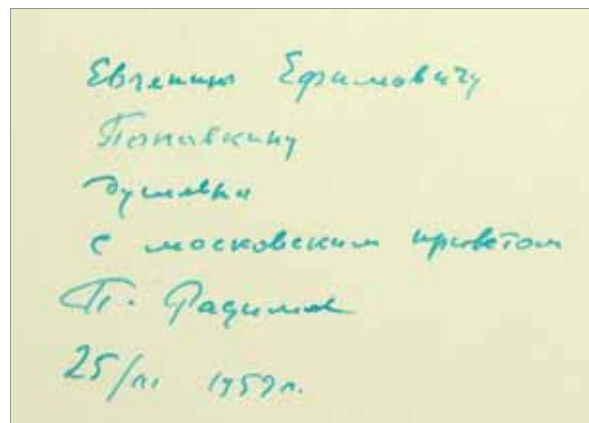 Евгению Ефимовичу
Поповкину
душевно
с московским приветом
П. Радимов
25/III 1959 г.